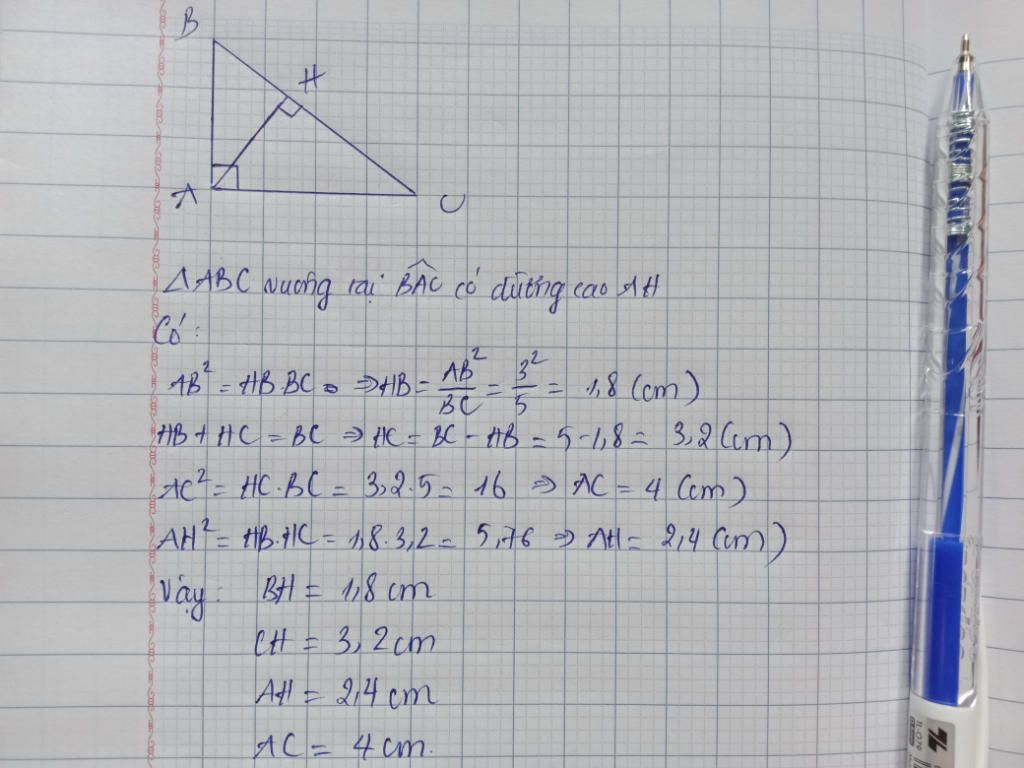 B
H
A
C
△ABC vuông tại BÂC có đường cao AH
Có:
AB² = HB.BC ⇒ HB = AB²/BC = 3²/5 = 1,8 (cm)
HB + HC = BC ⇒ HC = BC - HB = 5 - 1,8 = 3,2 (cm)
AC² = HC.BC = 3,2.5 = 16 ⇒ AC = 4 (cm)
AH² = HB.HC = 1,8.3,2 = 5,76 ⇒ AH = 2,4 (cm)
Vậy: BH = 1,8 cm
CH = 3,2 cm
AH = 2,4 cm
AC = 4 cm.
TL-079